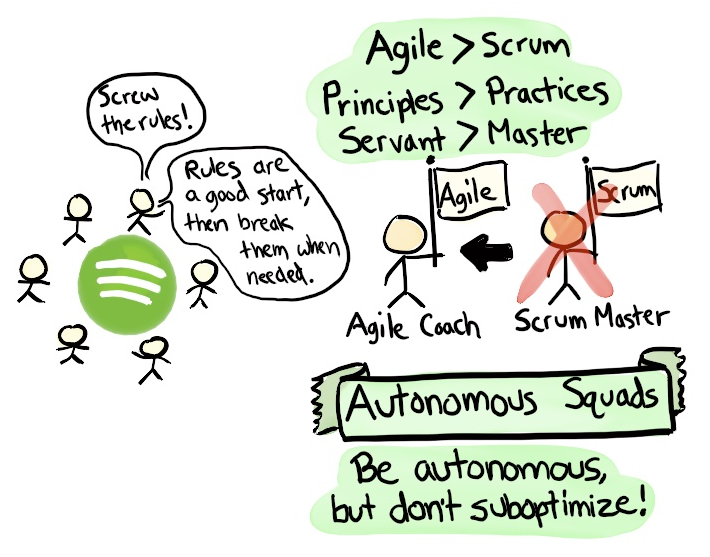 Screw
the rules!
Rules are
a good start,
then break
them when
needed.
Agile > Scrum
Principles > Practices
Servant > Master
Agile
Scrum
Agile Coach
Scrum Master
Autonomous Squads
Be autonomous,
but don't suboptimize!